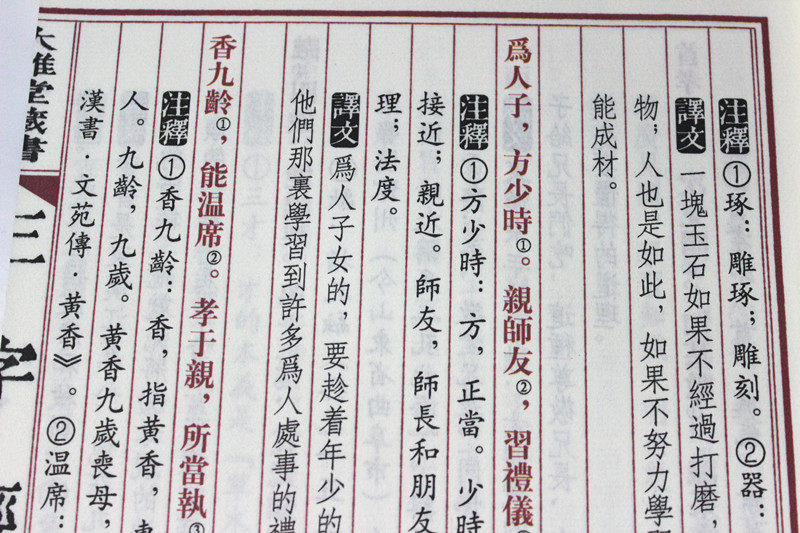 注釋①琢：雕琢；雕刻。②器：
譯文 一塊玉石如果不經過打磨，
物；人也是如此，如果不努力學
能成材。
爲人子，方少時①。親師友②，習禮儀
注釋①方少時：方，正當。少時
接近；親近。師友，師長和朋友
理；法度。
譯文 爲人子女的，要趁着年少的
他們那裏學習到許多爲人處事的禮
香九齡①，能温席②。孝于親，所當執③
注釋①香九齡：香，指黄香，東
人。九齡，九歲。黄香九歲喪母，
漢書·文苑傳·黄香》。②温席：
大雅堂藏書
三字經